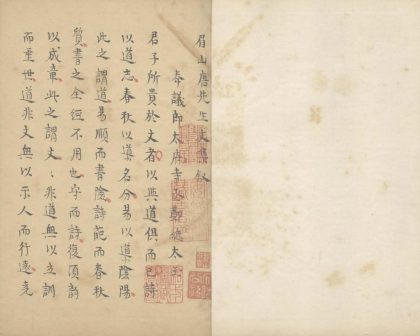 眉山唐先生文集叙
奉議郎太府寺丞鄭總太玉
君子所貴於文者以與道俱而已詩
以道志春秋以道名分易以道陰陽
此之謂道易順而書險詩葩而春秋
質書之全經不用也字而詩復頂韵
以成章此之謂文文非道無以立訓
而垂世道非文無以示人而行遠堯